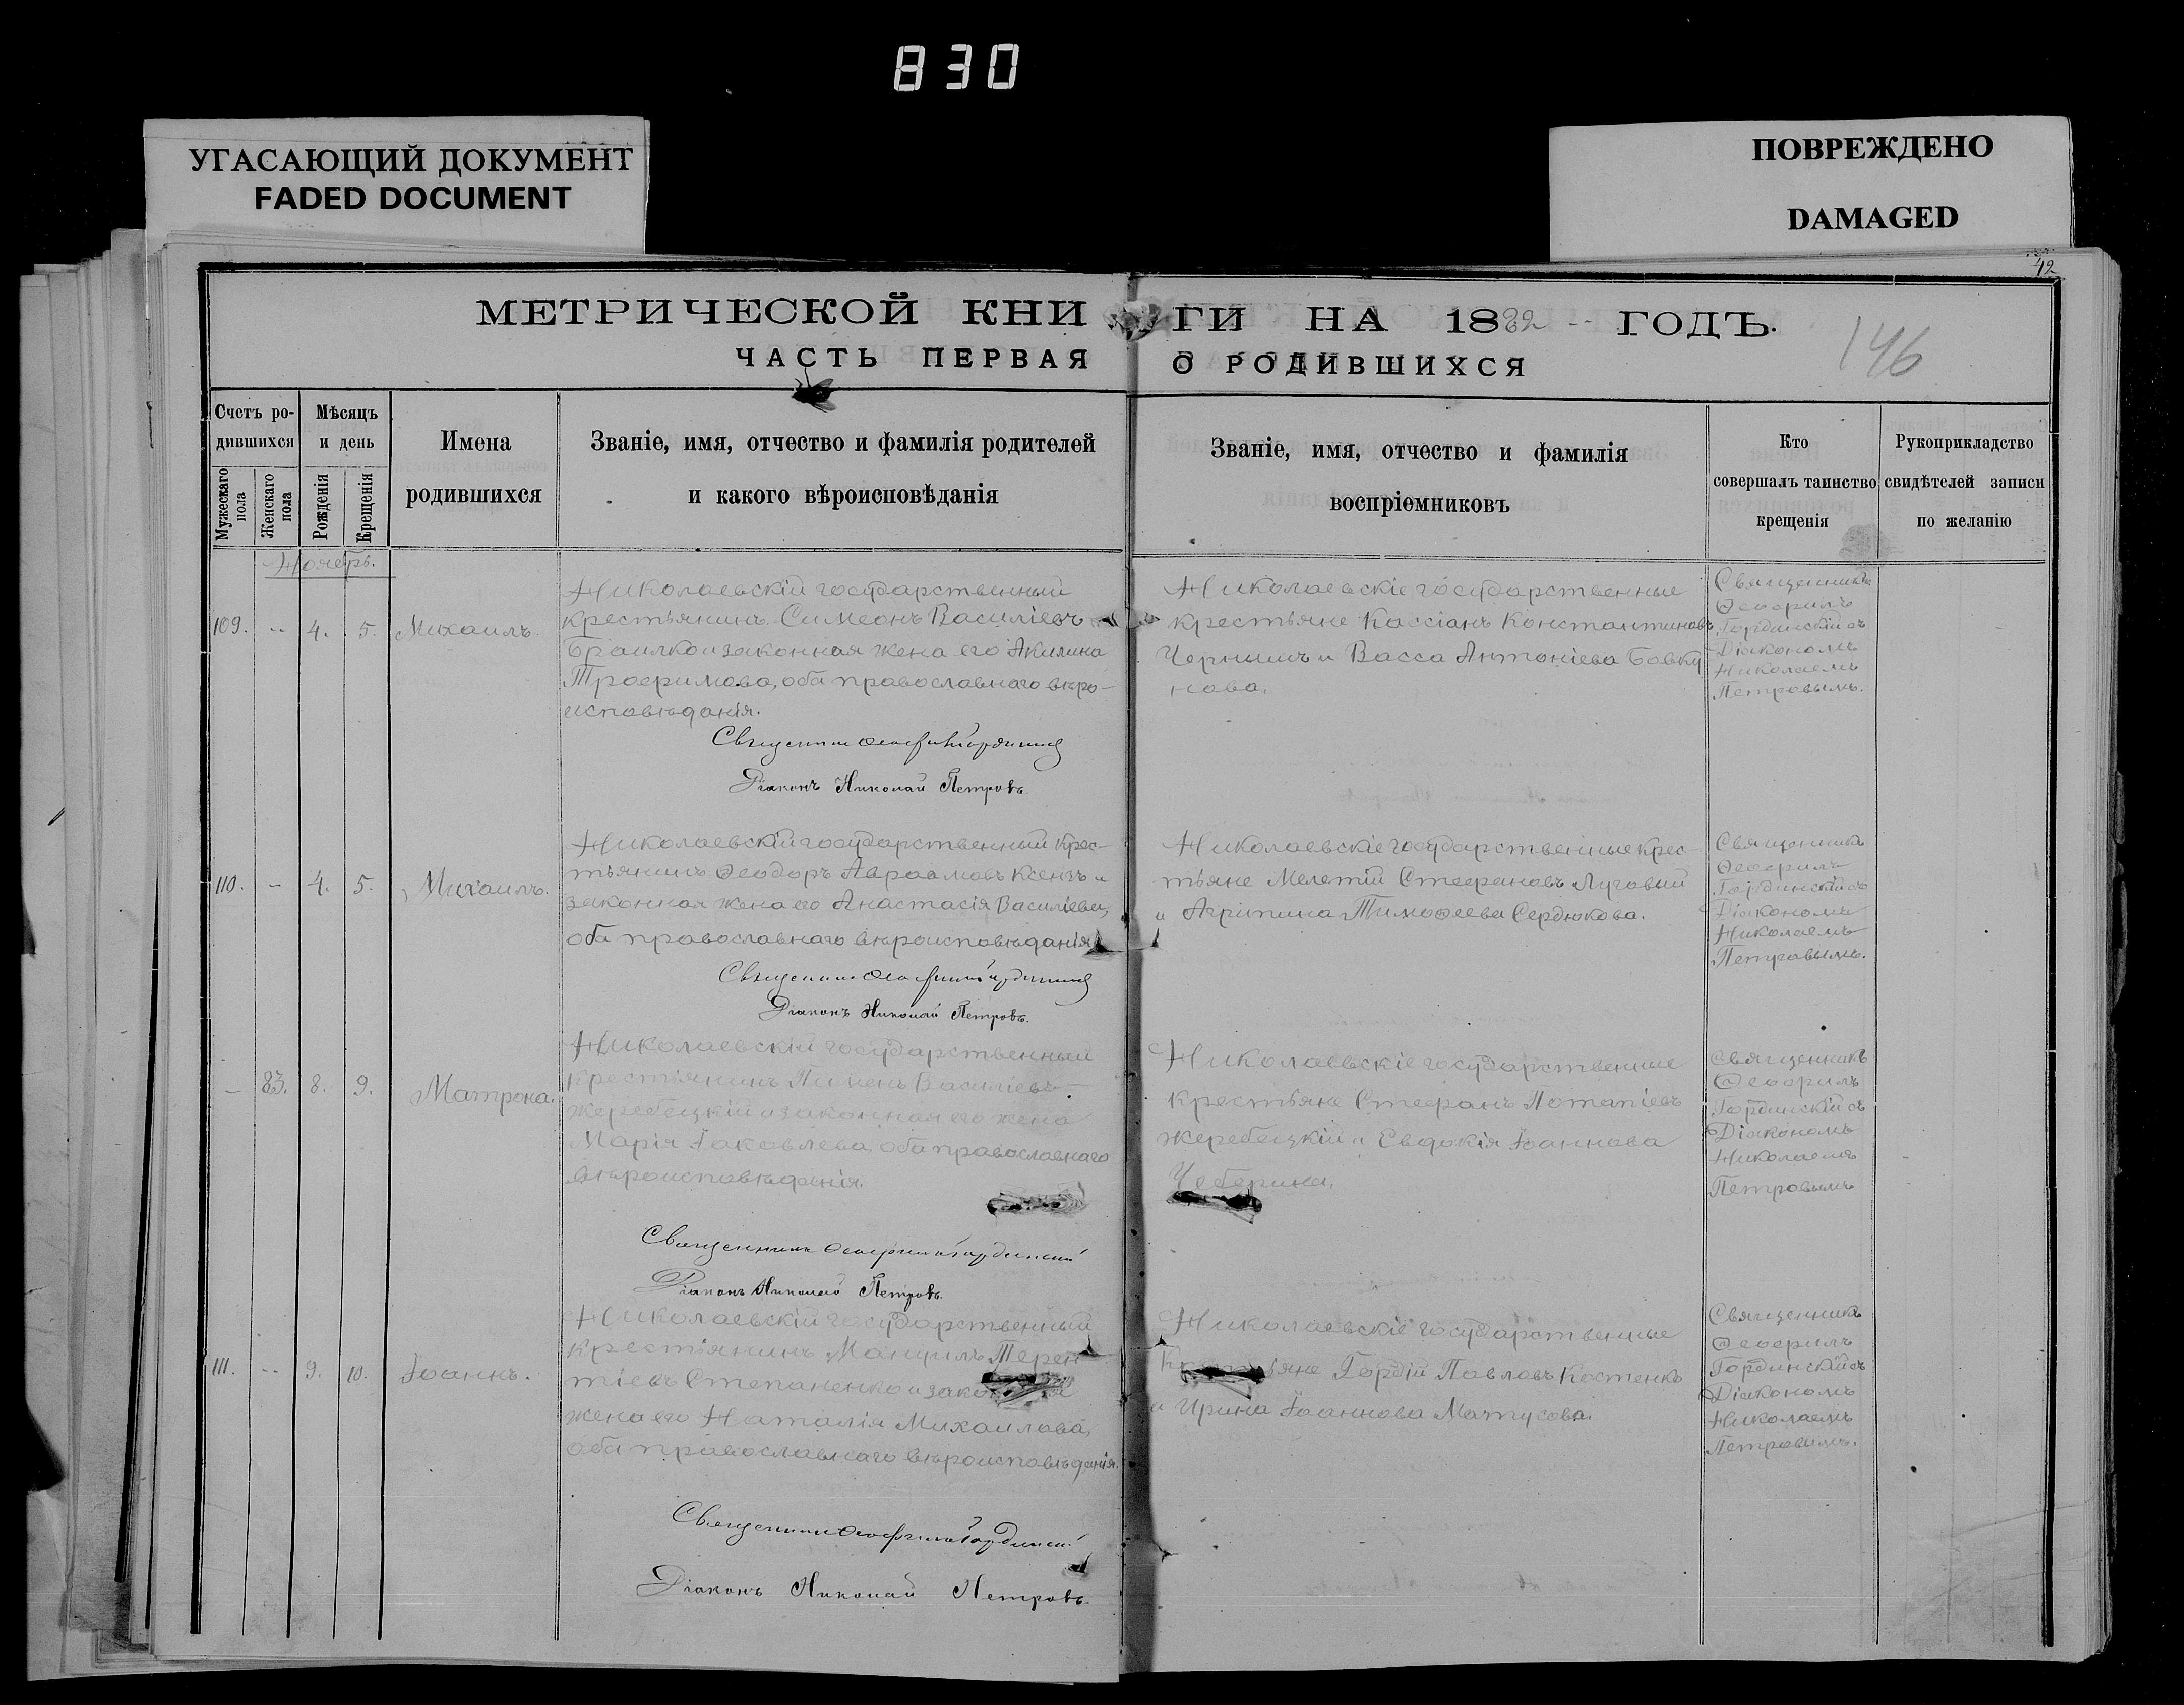 830
УГАСАЮЩИЙ ДОКУМЕНТ
FADED DOCUMENT
ПОВРЕЖДЕНО
DAMAGED
42
МЕТРИЧЕСКОЙ КНИ
ГИ НА 1882 ГОДЪ.
146
ЧАСТЬ ПЕРВАЯ
О РОДИВШИХСЯ
Счетъ ро-
дившихся
Мужескаго
пола
Женскаго
пола
Мѣсяцъ
и день
Рожденія
Крещенія
Имена
родившихся
Званіе, имя, отчество и фамилія родителей
и какого вѣроисповѣданія
Званіе, имя, отчество и фамилія
воспріемниковъ
Кто
совершалъ таинство
крещенія
Рукоприкладство
свидѣтелей записи
по желанію
Ноябрь.
109. -- 4. 5. Михаилъ.
Николаевскій государственный
крестьянинъ Симеонъ Василіевъ
Браилко и законная жена его Акилина
Трофимова, оба православнаго вѣро-
исповѣданія.
Священникъ Ѳеофилъ Гординскій
Діаконъ Николай Петровъ.
Николаевскіе государственные
крестьяне Кассіанъ Константиновъ
Чернышъ и Васса Антоніева Бовку
нова.
Священникъ
Ѳеофилъ
Гординскій съ
Діакономъ
Николаемъ
Петровымъ.
110. - 4. 5. Михаилъ.
Николаевскій государственный крес-
тьянинъ Ѳеодоръ Авраамовъ Ксензъ и
законная жена его Анастасія Василіева,
оба православнаго вѣроисповѣданія
Священникъ Ѳеофилъ Гординскій
Діаконъ Николай Петровъ.
Николаевскіе государственные крес-
тьяне Мелетій Стефановъ Луговый
и Агрипина Тимоѳеева Сердюкова.
Священникъ
Ѳеофилъ
Гординскій съ
Діакономъ
Николаемъ
Петровымъ.
- 83. 8. 9. Матрона.
Николаевскій государственный
крестьянинъ Пименъ Василіевъ
Жеребецкій и законная его жена
Марія Іаковлева, оба православнаго
вѣроисповѣданія.
Священникъ Ѳеофилъ Гординскій
Діаконъ Николай Петровъ.
Николаевскіе государственные
крестьяне Стефанъ Потапіевъ
Жеребецкій и Евдокія Іоаннова
Чеберина.
Священникъ
Ѳеофилъ
Гординскій съ
Діакономъ
Николаемъ
Петровымъ
111. -- 9. 10. Іоаннъ.
Николаевскій государственный
крестьянинъ Мануилъ Терен
тіевъ Степаненко и
жена его Наталія Михаилова,
оба православнаго вѣроисповѣданія.
Священникъ Ѳеофилъ Гординскій
Діаконъ Николай Петровъ.
Николаевскіе государственные
Гордій Павловъ Костенко
и Ирина Іоаннова Матусова.
Священникъ
Ѳеофилъ
Гординскій съ
Діакономъ
Николаемъ
Петровымъ.